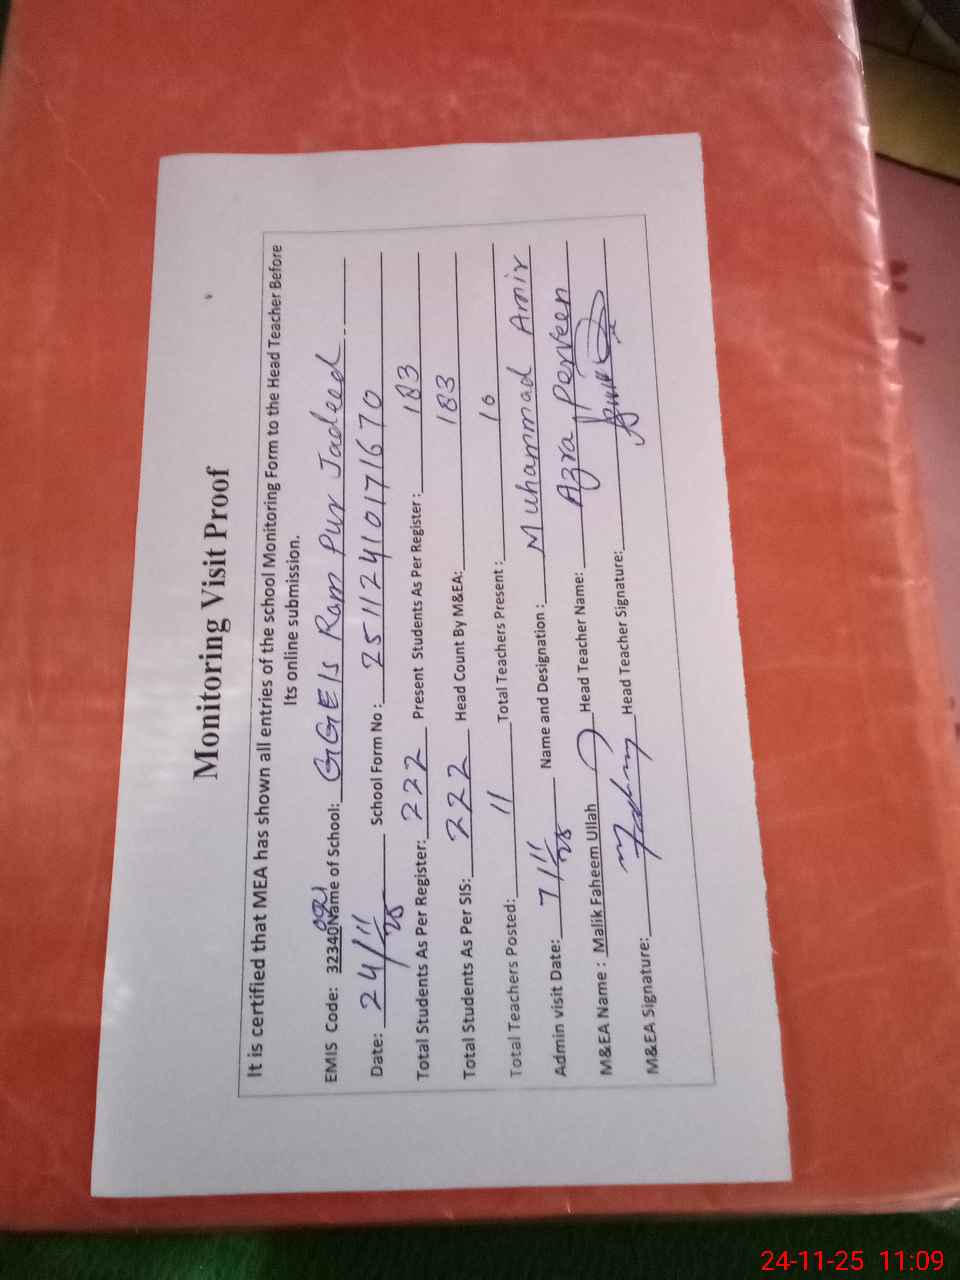 Monitoring Visit Proof
It is certified that MEA has shown all entries of the school Monitoring Form to the Head Teacher Before
Its online submission.
EMIS Code: 32340021 Name of School: GGElS Ram Pur Jadeed
Date: 24/11/25 School Form No : 251124101771670
Total Students As Per Register: 222 Present Students As Per Register: 183
Total Students As Per SIS: 222 Head Count By M&EA: 183
Total Teachers Posted: 11 Total Teachers Present : 10
Admin visit Date: 7/11/25 Name and Designation : Muhammad Amir
M&EA Name : Malik Faheem Ullah Head Teacher Name: Azra Perveen
M&EA Signature: Head Teacher Signature:
24-11-25 11:09